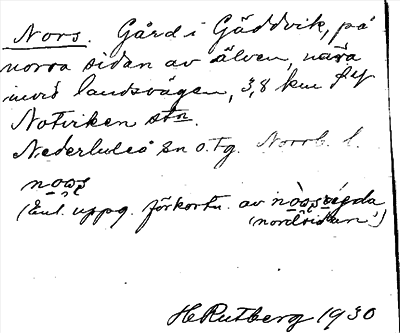 Nors. Gård i Gäddvik, på
norra sidan av älven, nära
invid landsvägen, 3,8 km
Notviken stn.
Nederluleå sn o. tg. Norrb. l.
(Enl. uppg. förkortn. av
(nordsidan')
H Rutberg 1930